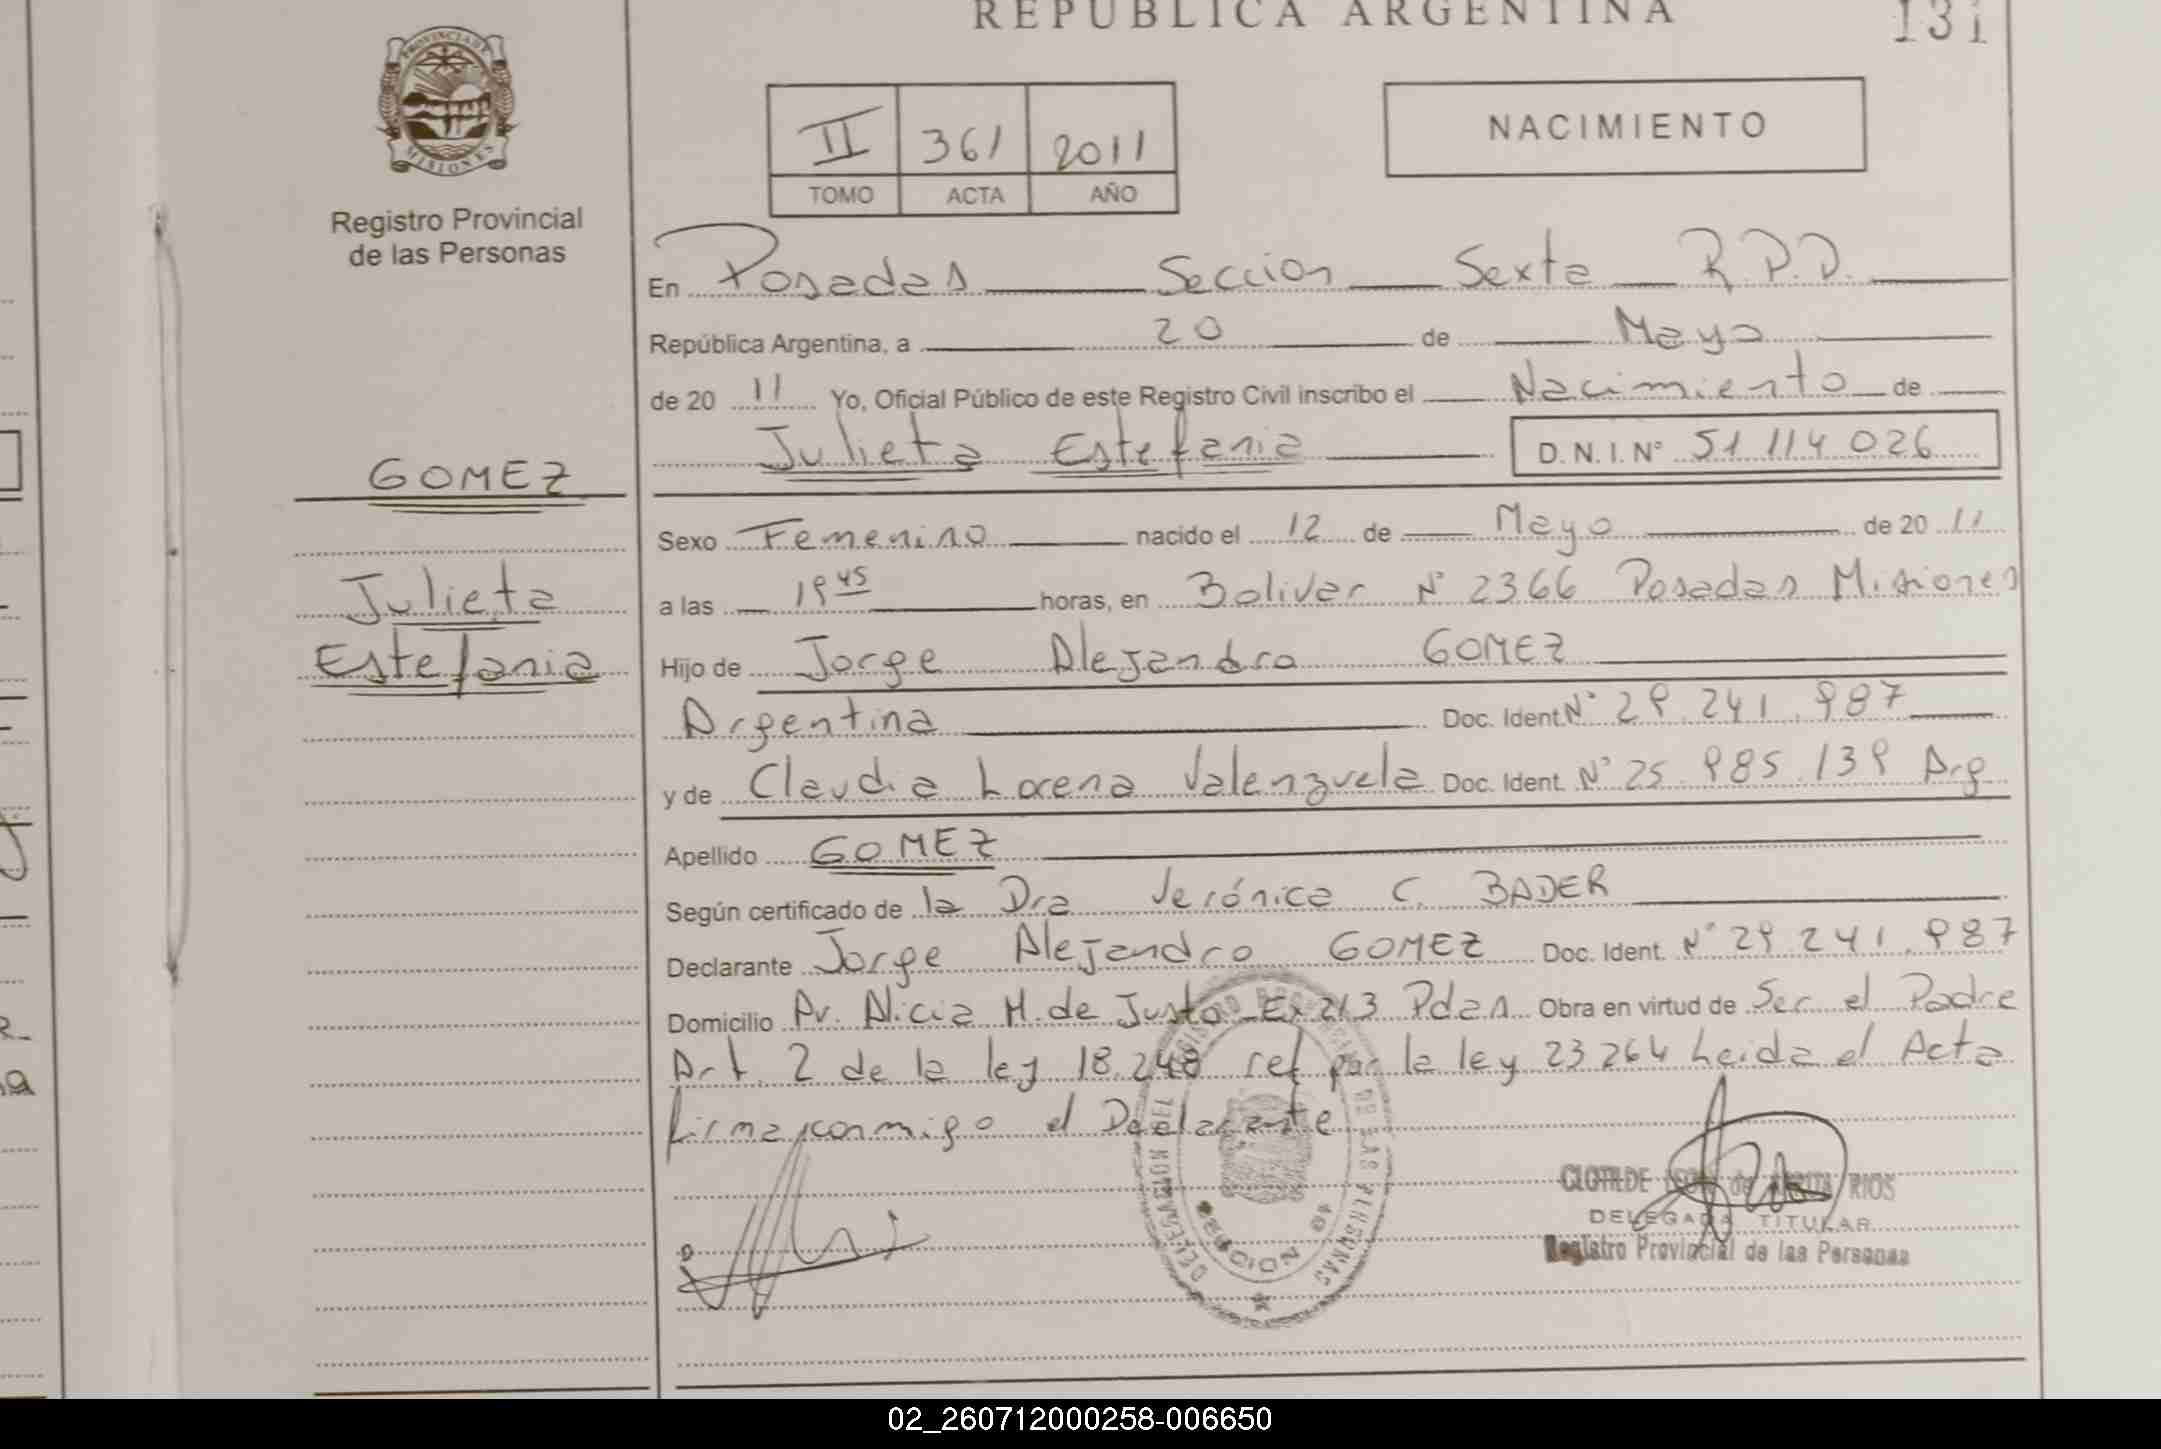 REPUBLICA ARGENTINA
131
PROVINCIA DE
MISIONES
Registro Provincial
de las Personas
II 361 2011
TOMO ACTA AÑO
NACIMIENTO
En Posadas Seccion Sexta R.P.P.
República Argentina, a 20 de Mayo
de 20 11 Yo, Oficial Público de este Registro Civil inscribo el Nacimiento de
Julieta Estefania D.N.I.Nº 51 114 026
GOMEZ
Julieta
Estefania
Sexo Femenino nacido el 12 de Mayo de 20 11
a las 19 45 horas, en Bolivar Nº 2366 Posadas Misiones
Hijo de Jorge Alejandro GOMEZ
Argentina Doc. Ident. Nº 29.241.987
y de Claudia Lorena Valenzuela Doc. Ident. Nº 25.985.139 Arg
Apellido GOMEZ
Según certificado de la Dra Verónica C. BADER
Declarante Jorge Alejandro GOMEZ Doc. Ident. Nº 29.241.987
Domicilio Av. Alicia M. de Justo Ex 213 Pdas Obra en virtud de Ser el Padre
Art. 2 de la ley 18.248 ref por la ley 23264 Leida el Acta
firma conmigo el Declarante
DELEGACION DEL REGISTRO PROVINCIAL DE LAS PERSONAS
CLOTILDE de RIOS
DELEGADA TITULAR
Registro Provincial de las Personas
02_260712000258-006650